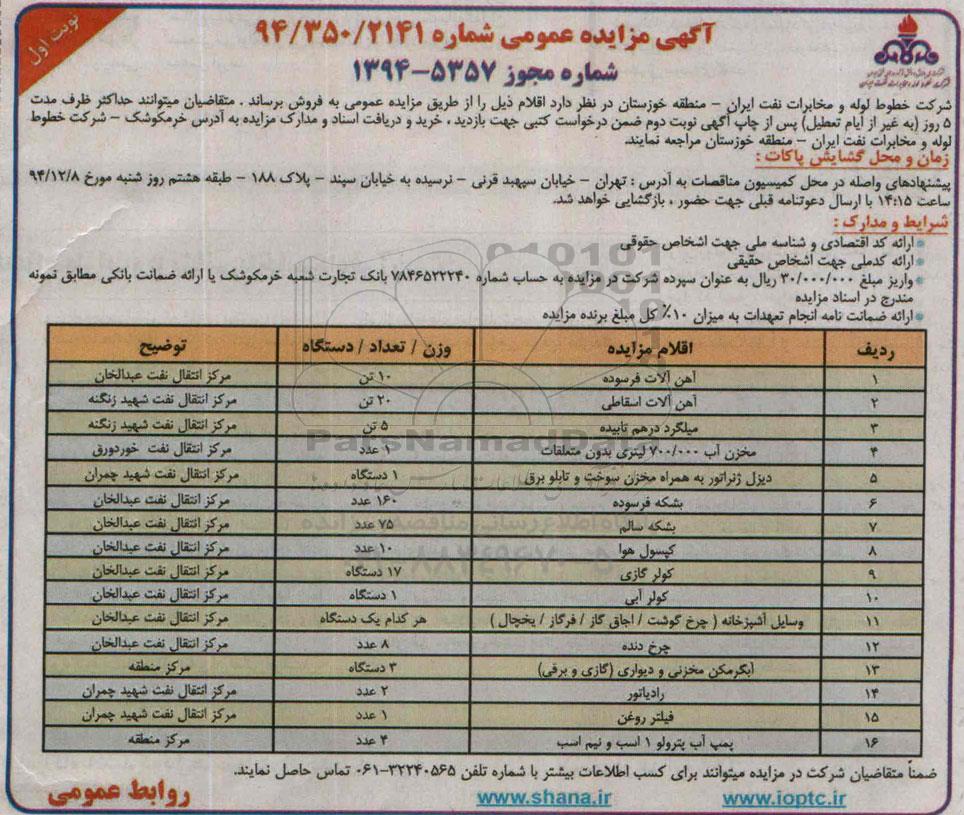 نوبت اول
آگهی مزایده عمومی شماره ۹۴/۳۵۰/۲۱۴۱
شماره مجوز ۵۳۵۷-۱۳۹۴
شرکت خطوط لوله و مخابرات نفت ایران – منطقه خوزستان در نظر دارد اقلام ذیل را از طریق مزایده عمومی به فروش برساند . متقاضیان میتوانند حداکثر ظرف مدت
۵ روز (به غیر از ایام تعطیل) پس از چاپ آگهی نوبت دوم ضمن درخواست کتبی جهت بازدید ، خرید و دریافت اسناد و مدارک مزایده به آدرس خرمکوشک – شرکت خطوط
لوله و مخابرات نفت ایران – منطقه خوزستان مراجعه نمایند.
زمان و محل گشایش پاکات :
پیشنهادهای واصله در محل کمیسیون مناقصات به آدرس : تهران – خیابان سپهبد قرنی – نرسیده به خیابان سپند – پلاک ۱۸۸ – طبقه هشتم روز شنبه مورخ ۹۴/۱۲/۸
ساعت ۱۴:۱۵ با ارسال دعوتنامه قبلی جهت حضور ، بازگشایی خواهد شد.
شرایط و مدارک :
ارائه کد اقتصادی و شناسه ملی جهت اشخاص حقوقی
ارائه کدملی جهت اشخاص حقیقی
واریز مبلغ ۳۰/۰۰۰/۰۰۰ ریال به عنوان سپرده شرکت در مزایده به حساب شماره ۷۸۴۶۵۲۲۲۴۰ بانک تجارت شعبه خرمکوشک یا ارائه ضمانت بانکی مطابق نمونه
مندرج در اسناد مزایده
ارائه ضمانت نامه انجام تعهدات به میزان ۱۰٪ کل مبلغ برنده مزایده
ردیف اقلام مزایده وزن / تعداد / دستگاه توضیح
۱ آهن آلات فرسوده ۱۰ تن مرکز انتقال نفت عبدالخان
۲ آهن آلات اسقاطی ۲۰ تن مرکز انتقال نفت شهید زنگنه
۳ میلگرد درهم تابیده ۵ تن مرکز انتقال نفت شهید زنگنه
۴ مخزن آب ۷۰۰/۰۰۰ لیتری بدون متعلقات ۱ عدد مرکز انتقال نفت خوردورق
۵ دیزل ژنراتور به همراه مخزن سوخت و تابلو برق ۱ دستگاه مرکز انتقال نفت شهید چمران
۶ بشکه فرسوده ۱۶۰ عدد مرکز انتقال نفت عبدالخان
۷ بشکه سالم ۷۵ عدد مرکز انتقال نفت عبدالخان
۸ کپسول هوا ۱۰ عدد مرکز انتقال نفت عبدالخان
۹ کولر گازی ۱۷ دستگاه مرکز انتقال نفت عبدالخان
۱۰ کولر آبی ۱ دستگاه مرکز انتقال نفت عبدالخان
۱۱ وسایل آشپزخانه ( چرخ گوشت / اجاق گاز / فرگاز / یخچال ) هر کدام یک دستگاه مرکز انتقال نفت عبدالخان
۱۲ چرخ دنده ۸ عدد مرکز انتقال نفت عبدالخان
۱۳ آبگرمکن مخزنی و دیواری (گازی و برقی) ۳ دستگاه مرکز منطقه
۱۴ رادیاتور ۲ عدد مرکز انتقال نفت شهید چمران
۱۵ فیلتر روغن ۱ عدد مرکز انتقال نفت شهید چمران
۱۶ پمپ آب پترولو ۱ اسب و نیم اسب ۴ عدد مرکز منطقه
ضمناً متقاضیان شرکت در مزایده میتوانند برای کسب اطلاعات بیشتر با شماره تلفن ۳۲۲۴۰۵۶۵-۰۶۱ تماس حاصل نمایند.
www.ioptc.ir www.shana.ir روابط عمومی